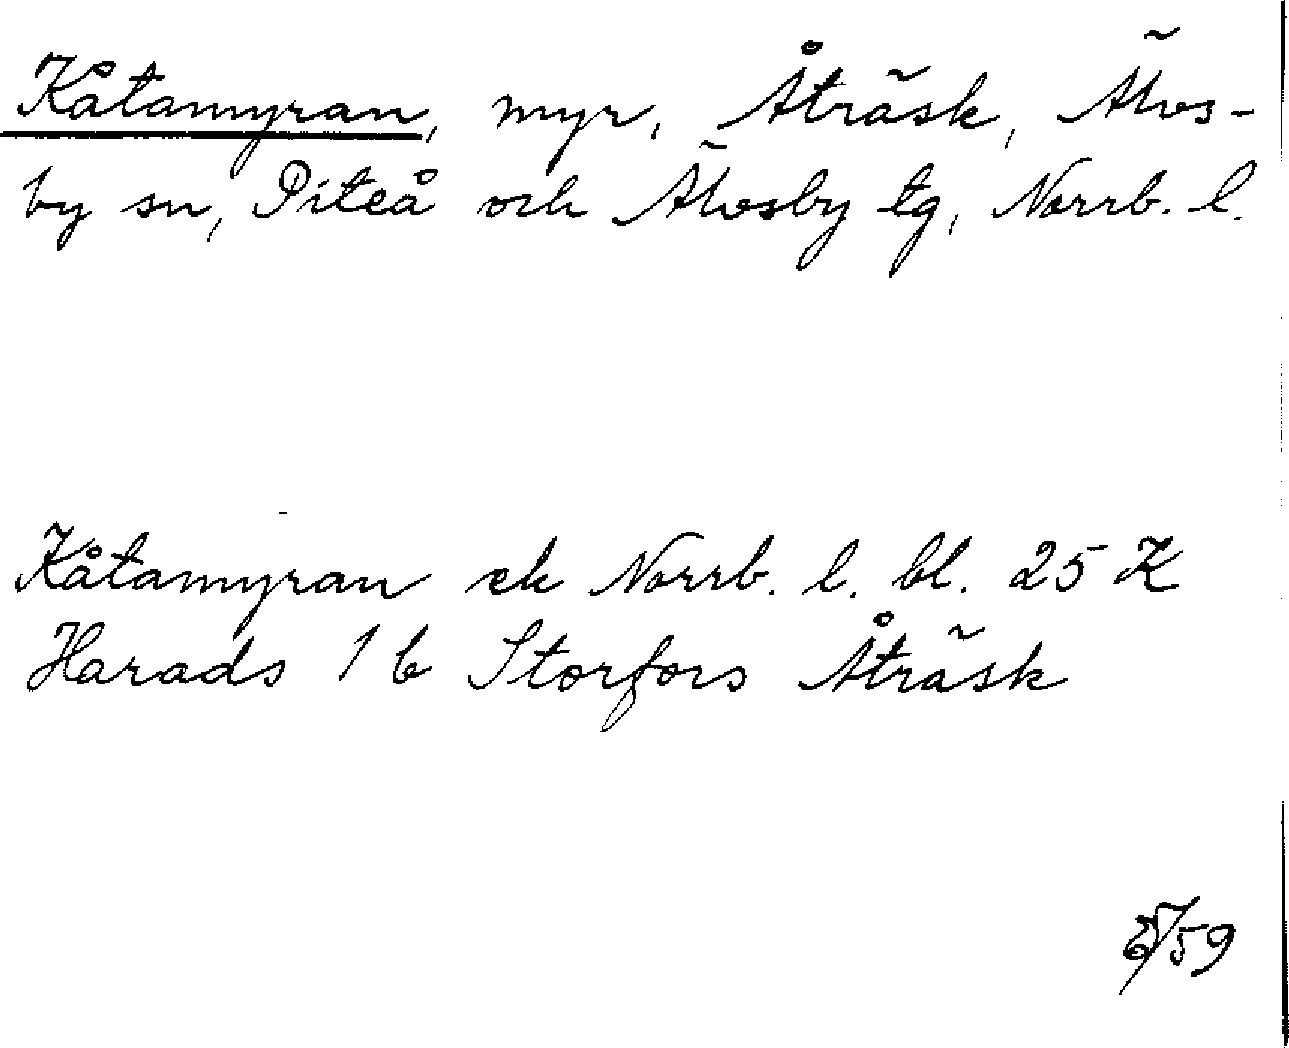 Kåtamyran, myr, Åträsk, Älvs-
by sn, Piteå och Älvsby tg, Norrb. l.
Kåtamyran ek Norrb. l. bl. 25 K
Harads 1 b Storfors Åträsk